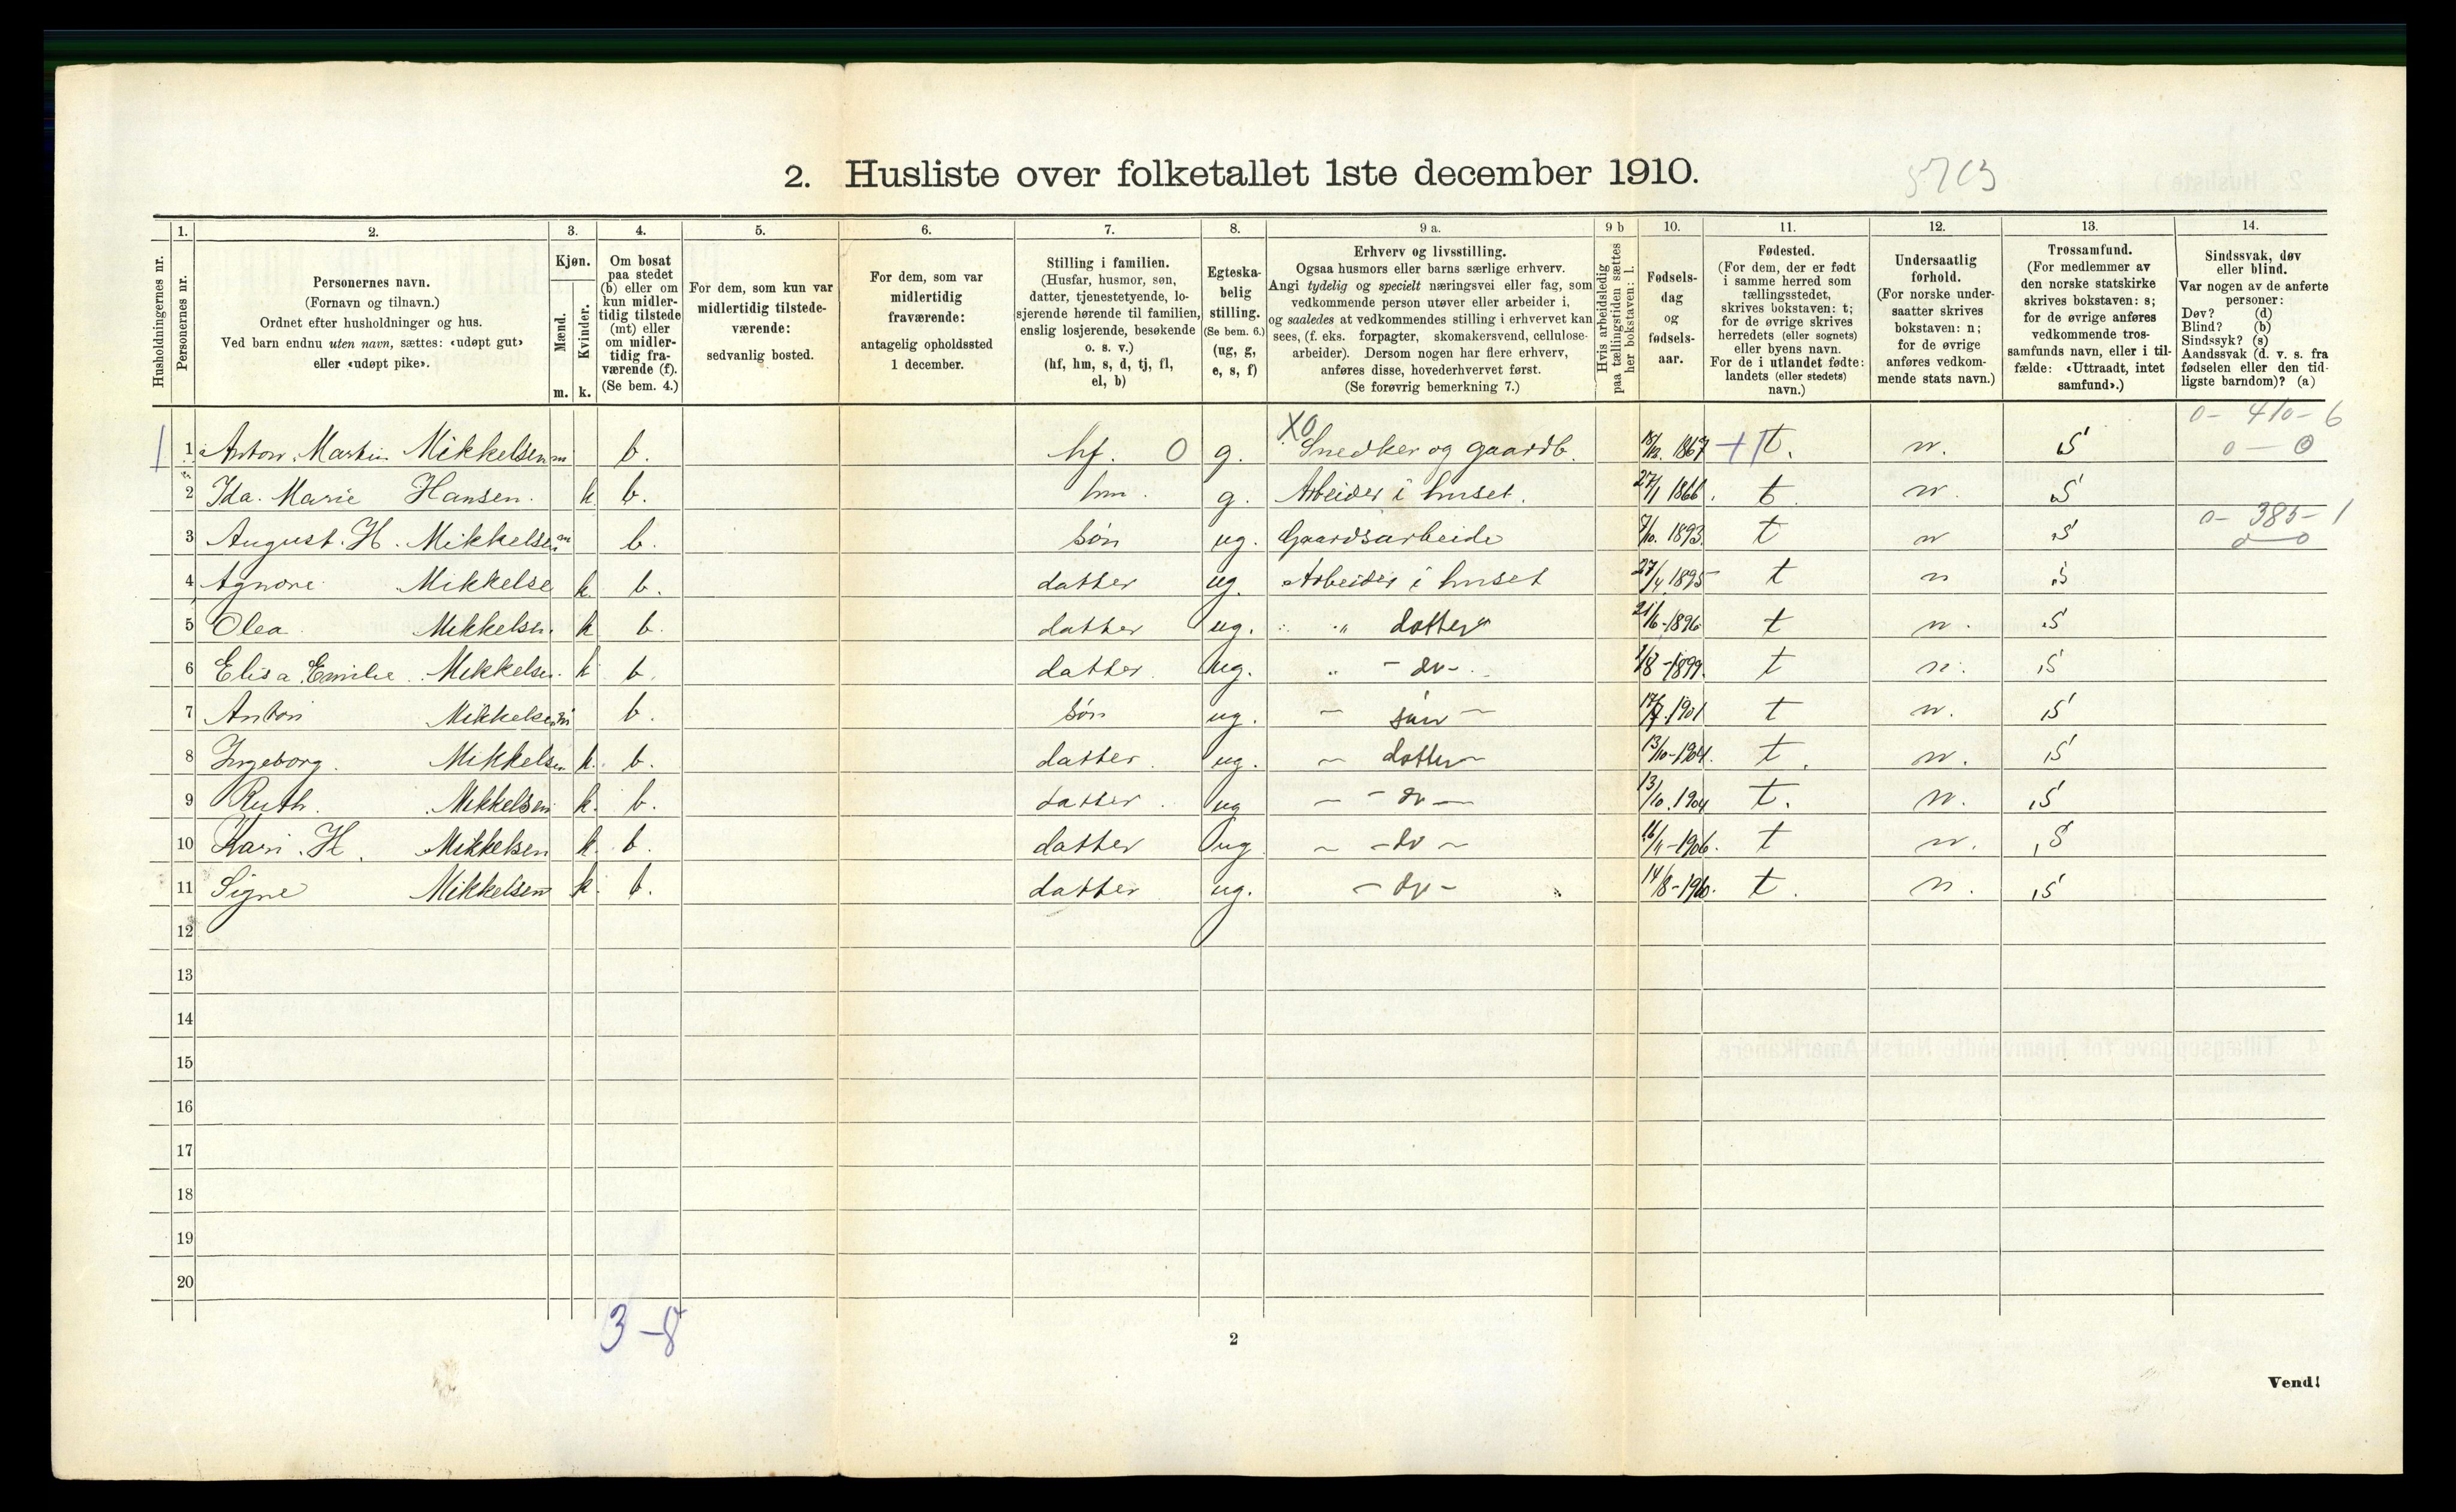 2. Husliste over folketallet 1ste december 1910.
5703
Husholdningernes nr.
1. Personernes nr.
2. Personernes navn. (Fornavn og tilnavn.) Ordnet efter husholdninger og hus. Ved barn endnu uten navn, sættes: «udøpt gut» eller «udøpt pike».
3. Kjøn. Mænd. m. Kvinder. k.
4. Om bosat paa stedet (b) eller om kun midlertidig tilstede (mt) eller om midlertidig fraværende (f). (Se bem. 4.)
5. For dem, som kun var midlertidig tilstedeværende: sedvanlig bosted.
6. For dem, som var midlertidig fraværende: antagelig opholdssted 1 december.
7. Stilling i familien. (Husfar, husmor, søn, datter, tjenestetyende, losjerende hørende til familien, enslig losjerende, besøkende o. s. v.) (hf, hm, s, d, tj, fl, el, b)
8. Egteskabelig stilling. (Se bem. 6.) (ug, g, e, s, f)
9 a. Erhverv og livsstilling. Ogsaa husmors eller barns særlige erhverv. Angi tydelig og specielt næringsvei eller fag, som vedkommende person utøver eller arbeider i, og saaledes at vedkommendes stilling i erhvervet kan sees, (f. eks. forpagter, skomakersvend, cellulosearbeider). Dersom nogen har flere erhverv, anføres disse, hovederhvervet først. (Se forøvrig bemerkning 7.)
9 b Hvis arbeidsledig paa tællingstiden sættes her bokstaven: l.
10. Fødselsdag og fødselsaar.
11. Fødested. (For dem, der er født i samme herred som tællingsstedet, skrives bokstaven: t; for de øvrige skrives herredets (eller sognets) eller byens navn. For de i utlandet fødte: landets (eller stedets) navn.)
12. Undersaatlig forhold. (For norske undersaatter skrives bokstaven: n; for de øvrige anføres vedkommende stats navn.)
13. Trossamfund. (For medlemmer av den norske statskirke skrives bokstaven: s; for de øvrige anføres vedkommende trossamfunds navn, eller i tilfælde: «Uttraadt, intet samfund».)
14. Sindssvak, døv eller blind. Var nogen av de anførte personer: Døv? (d) Blind? (b) Sindssyk? (s) Aandssvak (d. v. s. fra fødselen eller den tidligste barndom)? (a)
0 - 410 - 6
1 1 Anton Martin Mikkelsen m b. hf. 0 g. X0 Snedker og gaardb. 1867 +1 t. n. S 0 - 0
2 Ida Marie Hansen. k b. hm. g. Arbeider i huset. 27/1 1866. t. n. S
0 - 385 - 1
3 August. H. Mikkelsen m b. søn ug. Gaardsarbeide 7/10. 1893. t n S 0-0
4 Agnore Mikkelse k. b. datter ug. Arbeider i huset 27/4 1895 t n S
5 Olea Mikkelsen. k b. datter ug. " " datter " 21/6-1896 t n. S
6 Elisa Emilie Mikkelsen. k b. datter ug. " - do - /8-1899. t n. S
7 Anton Mikkelsen m b. søn ug. - søn - 1901 t n. S
8 Ingeborg. Mikkelsen k. b. datter. ug. - datter - 13/10-1904. t. n. S
9 Ruth. Mikkelsen k. b. datter. ug - - do - 13/10. 1904 t. n. S
10 Kari. H. Mikkelsen k. b. datter ug. - - do - 16/11-1906. t n. S
11 Signe Mikkelsen k. b. datter ug. - do - 14/8-1910. t. n. S
12
13
14
15
16
17
18
19
20
3 - 8
2
Vend!